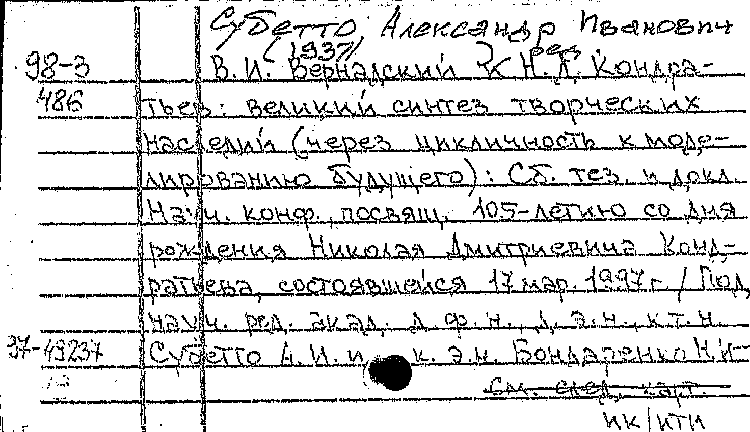 Субетто, Александр Иванович
(1937) ред.
98-3 В. И. Вернадский и Н. Д. Кондра-
486 тьев: великий синтез творческих
наследий (через цикличность к моде-
лированию будущего): Сб. тез. и докл.
Науч. конф., посвящ. 105-летию со дня
рождения Николая Дмитриевича Конд-
ратьева, состоявшейся 17 мар. 1997 г. / Под
науч. ред. акад. д. ф. н., д. э. н., к. т. н.
97-49237 Субетто А. И. и к. э. н. Бондаренко Н. И-
см. след. карт.
ИК/ИТИ